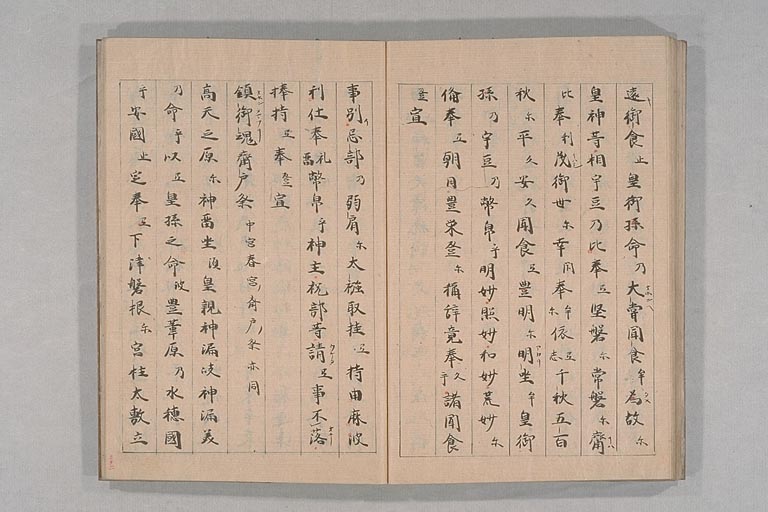 遠御食止皇御孫命乃大嘗聞食牟為故尓
皇神等相宇豆乃比奉豆堅磐尓常磐尓齋
比奉利茂御世尓幸閇奉牟依志千秋五百
秋尓平久安久聞食豆豊明尓明坐牟皇御
孫乃宇豆乃幣帛乎明妙照妙和妙荒妙尓
備奉豆朝日豊栄登尓稱辞竟奉久乎諸聞食
登宣
事別忌部乃弱肩尓太襁取挂豆持由麻波
利仕奉礼留幣帛乎神主祝部等請豆事不落
捧持豆奉登宣
鎮御魂齋戸祭 中宮春宮齋戸祭亦同
高天之原尓神留坐須皇親神漏岐神漏美
乃命乎以豆皇孫之命波豊葦原乃水穂國
乎安國止定奉豆下津磐根尓宮柱太敷立